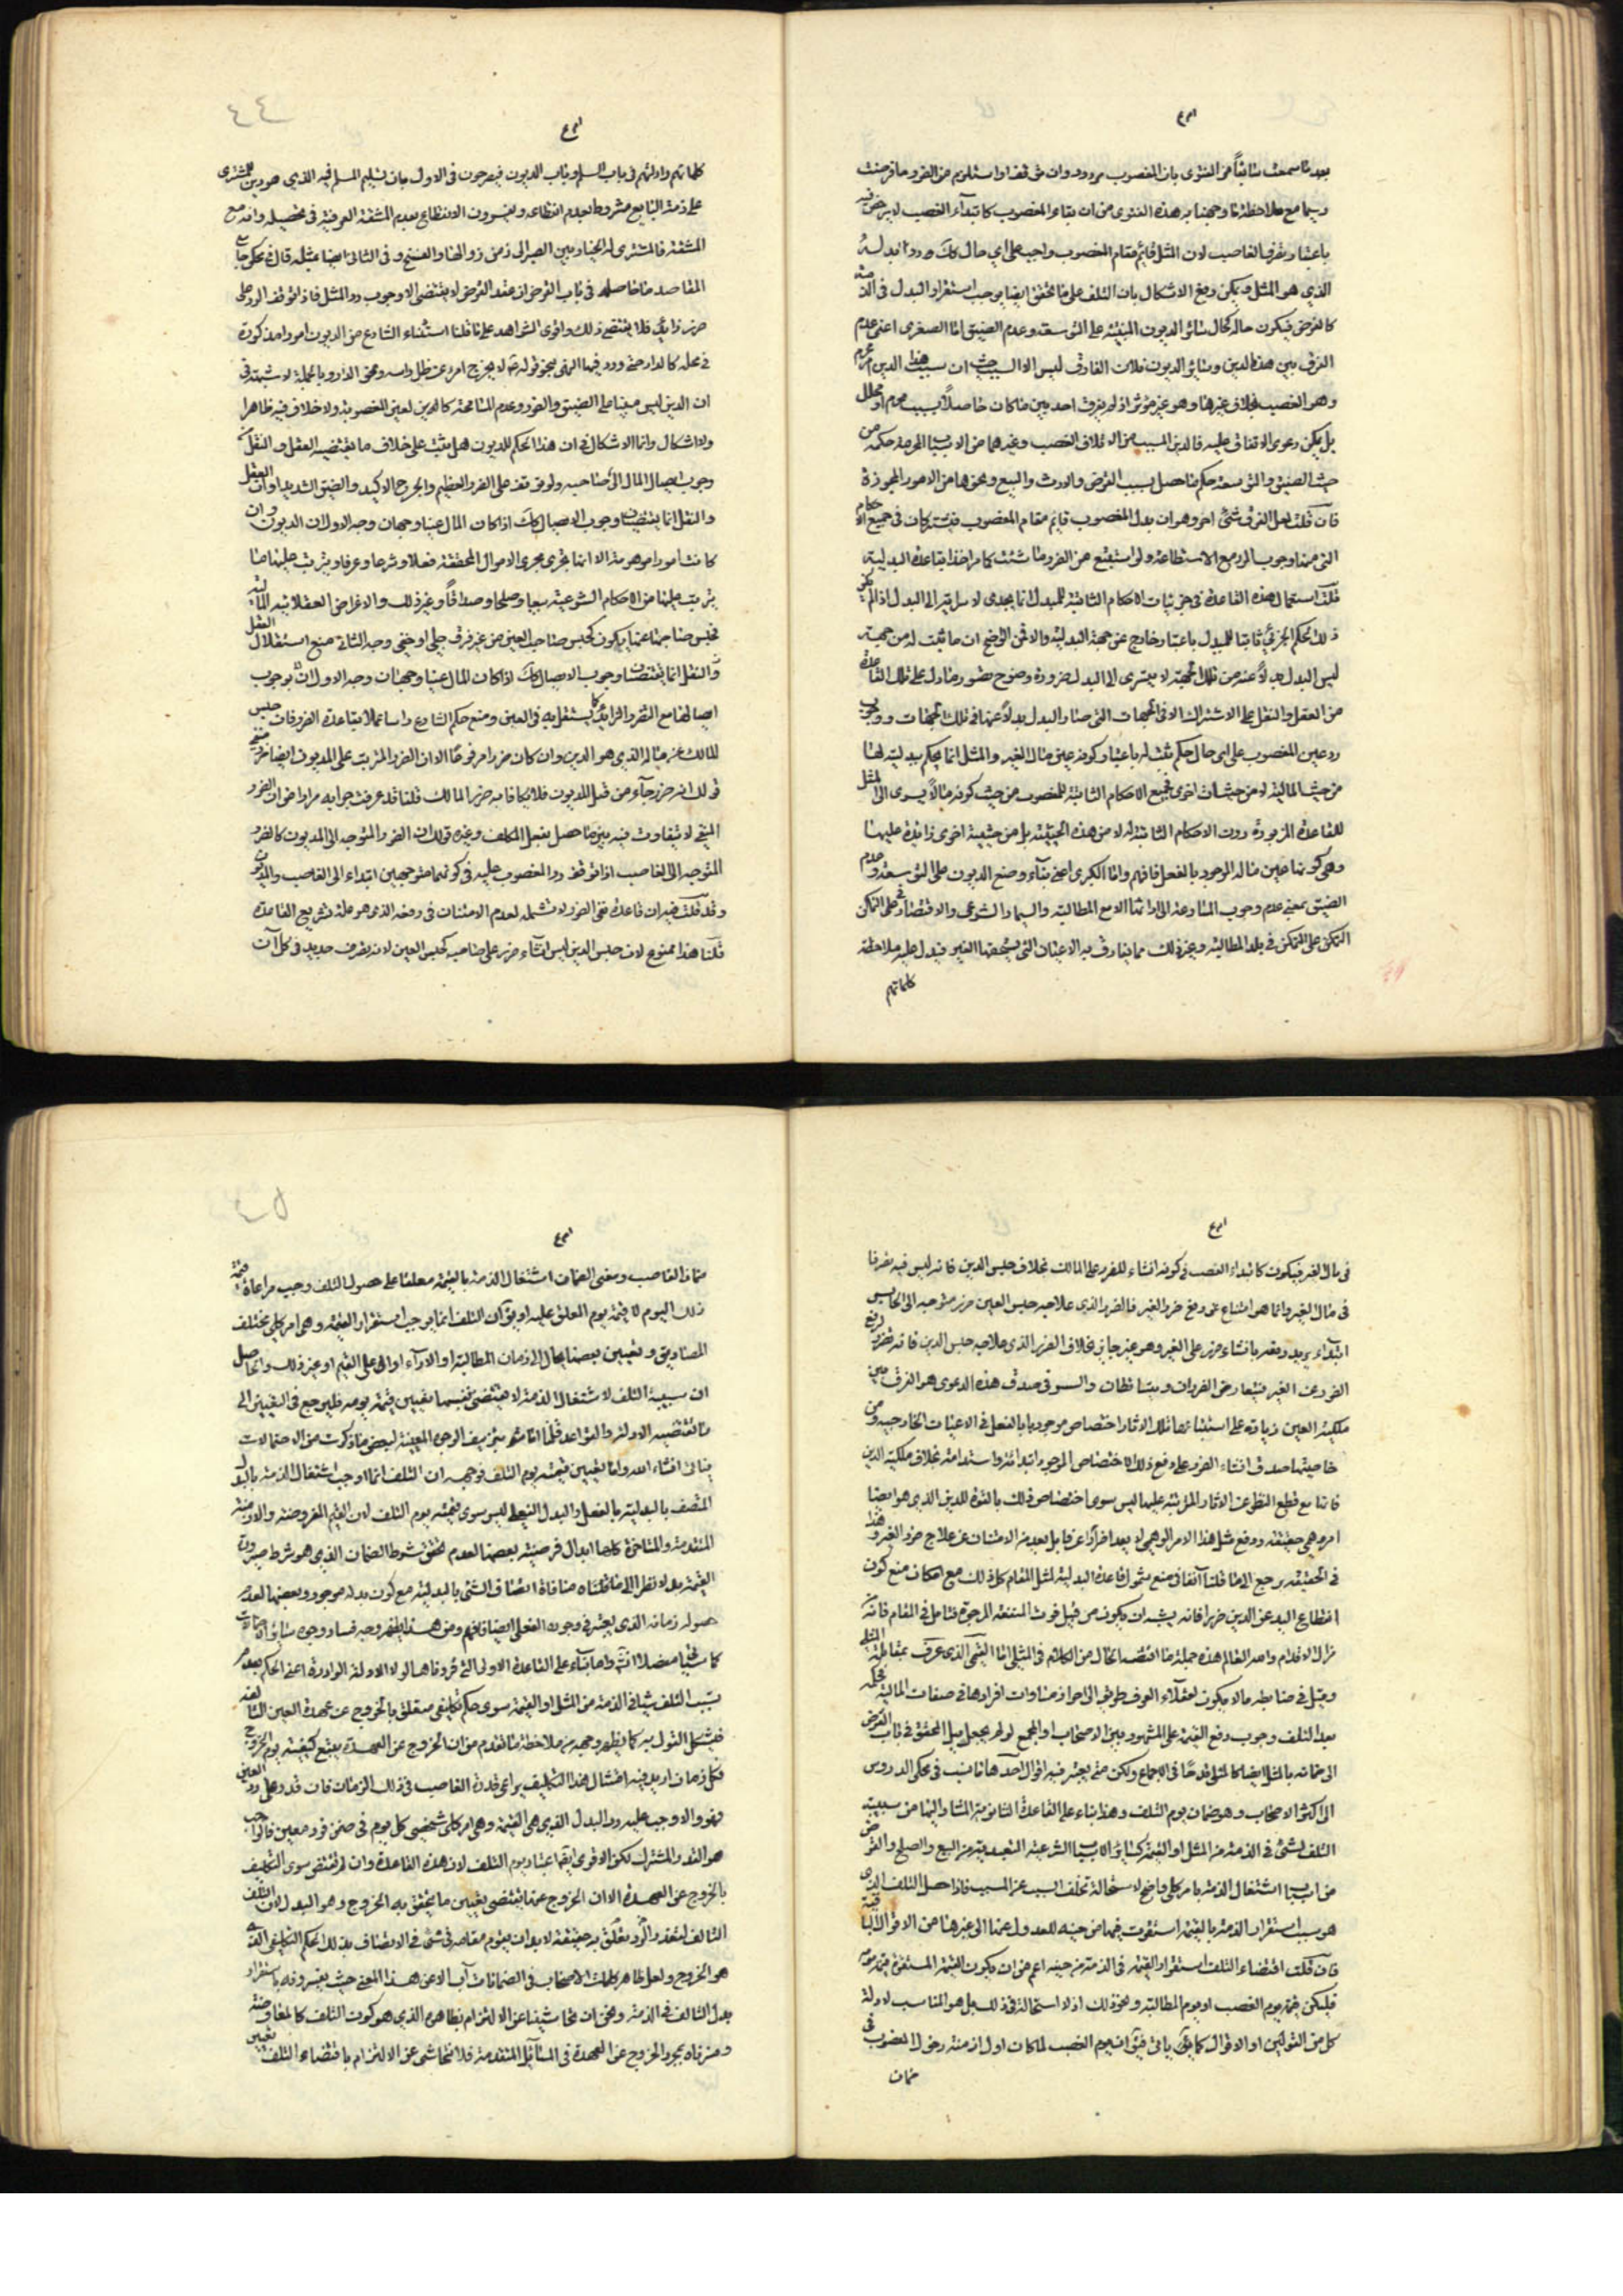 بعد ما سمعت سابقاً من الفتوى بان المغصوب مردود وان
وسيما مع ملاحظة ما وجهنا به هذه الفتوى من ان بقاء المغصوب كابتداء الغصب لا يرخص فيه
لان المثل قائم مقام المغصوب واجب على اي حال
الذي هو المثل ويمكن دفع الاشكال بان التلف على ما تحقق ايضا يوجب استقرار البدل في الذمة
كالقرض فيكون حاله كحال سائر الديون المبنية على التوسعة وعدم الضيق اما الصغرى اعنى عدم
الفرق بين هذا الدين وسائر الديون فلان الفارق ليس الا السبب حيث ان سبب هذا الدين امر محرم
وهو الغصب بخلاف غيرها وهو غير مؤثر اذ لم يفرق احد بين ما كان حاصلاً بسبب محرم او محلل
بل يمكن دعوى الاتفاق عليه فالدين المسبب من الاتلاف الغصب وغيرهما من الاسباب المحرمة حكمه من
حيث الضيق والتوسعة حكم ما حصل بسبب القرض والارث والبيع ونحوها من الامور المجوزة
فان قلت لعل الفرق شئ اخر وهو ان بدل المغصوب قائم مقام المغصوب فيشتركان في جميع الاحكام
التي منها وجوب الرد مع الاستطاعة ولو استتبع من الضرر ما شئت كما مر اخذا بقاعدة البدلية
قلت استعمال هذه القاعدة في جزئيات الاحكام الثابتة للمبدل انما يجدى لاسرائه الى البدل اذا لم يكن
ذلك الحكم الجزئي ثابتا للمبدل باعتبار خارج عن جهة البدلية والا فمن الواضح ان ما ثبت له من جهة
ليس البدل بدلاً عنه من تلك الجهة لا يسرى الى البدل ضرورة وضوح قصور ما دل على تلك القاعدة
من العقل والنقل على الاشتراك الا في الجهات التي صار البدل بدلاً عنها في تلك الجهات ووجوب
رد عين المغصوب على اي حال حكم ثبت له باعتبار كونه عين مال الغير والمثل انما يحكم ببدليته لها
من حيث المالية لا من حيثيات اخرى فجميع الاحكام الثابتة للمغصوب من حيث كونه مالاً يسرى الى المثل
للقاعدة المزبورة دون الاحكام الثابتة له لا من هذه الحيثية بل من حيثية اخرى زائدة عليها
وهي كونها عين ماله الموجود بالفعل فافهم واما الكبرى اعنى بناء وضع الديون على التوسعة وعدم
الضيق بمعنى عدم وجوب المسارعة الى ادائها الا مع المطالبة واليسار الشرعى والاقتصار في على التمكن
التمكن على التمكن في بلد المطالبة وغير ذلك مما يفارق به الاعيان التي يستحقها الغير فيدل عليه ملاحظة
كلماتهم
كلماتهم وادلتهم في باب السلم وباب الديون فيصرحون في الاول بان تسليم المسلم فيه الذي هو دين للمشترى
على ذمة البايع مشروط بعدم انقطاعه ويفسرون الانقطاع بعدم المشقة العرفية في تحصيله وانه مع
المشقة فالمشترى له الخيار بين الصبر الى زمن زوالها والفسخ وفي الثانى ايضا بمثله قال في محكى جامع
المقاصد ما حاصله في باب القرض ان عقد القرض لا يقتضى الا وجوب رد المثل فاذا توقف الرد على
ضرر زايد فلا يقتضى ذلك واقوى الشواهد على ما قلنا استثناء الشارع من الديون امورا مذكورة
في محله كالدار حتى ورد فيها النهى بنحو قوله لا يخرج امرء عن ظل راسه وبالجملة لا شبهة في
ان الدين ليس مبنيا على الضيق والفور وعدم المسامحة كالدين لعين المغصوبة ولا خلاف فيه ظاهرا
ولا اشكال وانما الاشكال في ان هذا الحكم للديون هل يثبت على خلاف ما يقتضيه العقل والنقل من
وجوب ايصال المال الى صاحبه ولو توقف على الضرر العظيم والحرج الاكيد والضيق الشديد او ان العقل
والنقل انما يقتضيان وجوب الايصال كك اذا كان المال عينا وجهان وجه الاول ان الديون وان
كانت امورا موهومة الا انها تجرى مجرى الاموال المحققة فعلا وشرعا وعرفا ويترتب عليها ما
يترتب عليها من الاحكام الشرعية بيعا وصلحا وصداقاً وغير ذلك والاغراض العقلائية المالية
فحبس صاحبها عنها يكون كحبس صاحب العين من غير فرق جلى او خفى وجه الثانى منع استقلال العقل
والنقل انما يقتضيان وجوب الايصال كك اذا كان المال عينا وجهان وجه الاول ان بوجوب
ايصالها مع الضرر الزايد كما يستقل به في العين ومنع حكم الشارع راسا عملا بقاعدة الضرر فان حبس
المالك عن ماله الذي هو الدين وان كان ضررا مرفوعا الا ان الضرر المترتب على المديون ايضا ضرر منفى
قولك انه ضرر جاء من قبل المديون فلا يكافؤ به ضرر المالك قلنا قد عرفت جوابه مرارا من ان الضرر
المنفى لا يتفاوت فيه بين ما حصل بفعل المكلف وغيره قولك ان الضرر المتوجه الى المديون كالضرر
المتوجه الى الغاصب اذا توقف رد المغصوب عليه في كونهما متوجهين ابتداء الى الغاصب والمديون
وقد قلت فيه ان قاعدة نفى الضرر لا تشمله لعدم الامتنان في رفعه الذي هو علة تشريع القاعدة
قلنا هذا ممنوع لان حبس الدين ليس انشاء ضرر على صاحبه كحبس العين لانه تصرف جديد في كل آن
في مال الغير فيكون كابتداء الغصب في كونه انشاء للضرر على المالك بخلاف حبس الدين فانه ليس فيه تصرفا
في مال الغير وانما هو امتناع عن دفع ضرر الغير فالضرر الذي علاجه حبس العين ضرر متوجه الى الحابس
ابتداء يريد دفعه بانشاء ضرر على الغير وهو غير جايز بخلاف الضرر الذي علاجه حبس الدين فانه
الضرر عن الغير فيتعارض الضرران ويتساقطان والسر في صدق هذه الدعوى هو الفرق بين
ملكية العين زيادة على استتباعها تلك الاثار اختصاص موجود بالفعل في الاعيان الخارجية ومن
خاصيتها صدق انشاء الضرر على دفع ذلك الاختصاص الموجود ابتدائه واستدامته بخلاف ملكية الدين
فانها مع قطع النظر عن الاثار المترتبة عليها ليس سوى اختصاص ذلك بالقوة للدين الذي هو ايضا
امر وهمى حقيقة ودفع مثل هذا الامر الوهمى لا يعد اضرارا عن علاج ضرر الغير وهذا
في الحقيقة يرجع الى ما قلنا آنفا في منع شمول قاعدة البدلية لمثل المقام كل ذلك مع امكان منع كون
انقطاع اليد عن الدين ضررا فانه يشبه ان يكون من قبيل فوت المنفعة المرجوة فتامل في المقام فانه من
مزال الاقدام والله العالم هذه جملة ما اقتضاه الحال من الكلام في المثلى اما القيمى الذي عرف بمقابلة المثلى
وقيل في ضابطه ما لا يكون لعقلاء العرف طريق الى احراز مساوات افراده في صفات المالية فحكمه
بعد التلف وجوب دفع القيمة على المشهور بين الاصحاب او المجمع لو لم يجعل ميل المحقق في باب القرض
الى ضمانه بالمثل ايضا كالمثلى قدحا في الاجماع ولكن متى يعتبر فيه اقوال احدها ما نسب في محكى الدروس
الى اكثر الاصحاب وهو ضمان يوم التلف وهذا بناء على القاعدة الثانوية المشار اليها من سببية
التلف لشئ في الذمة من المثل او القيمة كسائر الاسباب الشرعية التعبدية من البيع والصلح والقرض
من اسباب اشتغال الذمة بامر كلى واضح لاستحالة تخلف السبب عن المسبب فاذا حصل التلف الذي
هو سبب استقرار الذمة بالقيمة استقرت فيها من حينه للعدول عنها الى غيرها من الاقوال
فان قلت اقتضاء التلف استقرار القيمة في الذمة من حينه اعم من ان يكون القيمة المستقرة قيمة يومه
فليكن قيمة يوم الغصب او يوم المطالبة ونحو ذلك اذ لا استحالة في ذلك بل هو المناسب لادلة
كل من القولين او الاقوال كما يق ياتى في ان يوم الغصب لما كان اول ازمنة دخول المغصوب في
ضمان
ضمان الغاصب ومعنى الضمان اشتغال الذمة بالقيمة معلقا على حصول التلف وجب مراعاة قيمة
ذلك اليوم لا قيمة يوم المعلق عليه او يق ان التلف انما يوجب استقرار القيمة وهى امر كلى مختلف
المصاديق وتعيين بعضها يحال الى زمان المطالبة او الاداء او الى على القيم او غير ذلك والحاصل
ان سببية التلف لاشتغال الذمة لا يقتضى بنفسها تعيين قيمة يومه فليرجع في التعيين الى
ما تقتضيه الادلة والقواعد قلنا تزييف الوجوه المعينة لبعض ما ذكرت من الاحتمالات
ياتى انشاء الله واما تعيين قيمة يوم التلف فوجهه ان التلف انما اوجب اشتغال الذمة بالبدل
المتصف بالبدلية بالفعل والبدل الفعلى ليس سوى قيمته يوم التلف لان القيم المفروضة والازمنة
المتقدمة والمتاخرة كلها ابدال فرضية بعضها لعدم تحقق شرط الضمان الذي هو شرط صيرورة
القيمة بدلا نظرا الى ما قلناه من منافاة اتصاف الشئ بالبدلية مع كون مبدله موجودا وبعضها لعدم
حصول زمانه الذي يعتبر في وجوده الفعلى ايضا فافهم ومن هنا يظهر وجه فساد وجوه سائر الاحتمالات
كما سيجئ مفصلا انش واما بناء على القاعدة الاولى التي قررناها لولا الادلة الواردة اعنى الحكم بعدم
تسبب التلف شيئا في الذمة من المثل او القيمة سوى حكم تكليفى متعلق بالخروج عن عهدة العين التالفة
فيشكل القول به كما يظهر وجهه من ملاحظة ما تقدم من ان الخروج عن العهدة يتبع كيفيته يوم الخروج
فكل زمان اريد فيه امتثال هذا التكليف يراعى قدرة الغاصب في ذلك الزمان فان قدر على رد العين
فهو والا وجب عليه رد البدل الذي هى القيمة وهى امر كلى شخصى كل يوم في ضمن فرد معين فالواجب
هو القدر المشترك لكن الاقوى اعتبار يوم التلف لان هذه القاعدة وان لم تقتض سوى التكليف
بالخروج عن العهدة الا ان الخروج عنها يقتضى تعيين ما يتحقق به الخروج وهو البدل لان التلف
التالف لتعذر الرد وتعلق به حقيقة لا بد ان يقوم مقامه شئ في الاتصاف بذلك الحكم التكليفى الذي
هو الخروج ولعل ظاهر كلمات الاصحاب في الضمانات آب الا عن هذا المعنى حيث يفسرونه باستقرار
بدل التالف في الذمة ونحن ان تحاشينا عن الالتزام بظاهره الذي هو كون التلف كالمعاوضة
وفسرناه بمجرد الخروج عن العهدة في المسائل المتقدمة فلا نتحاشى عن الالتزام باقتضاء التلف تعيين